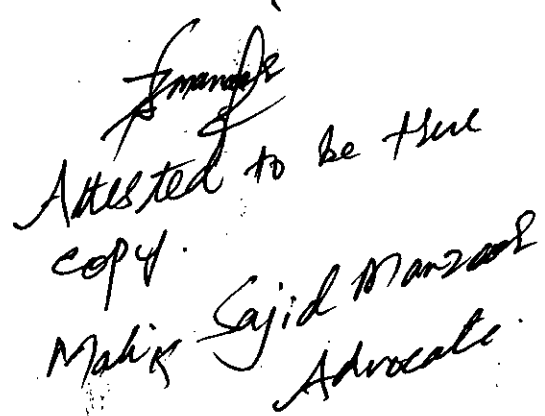 Attested to be true
copy.
Malik Sajid Manzoor
Advocate.